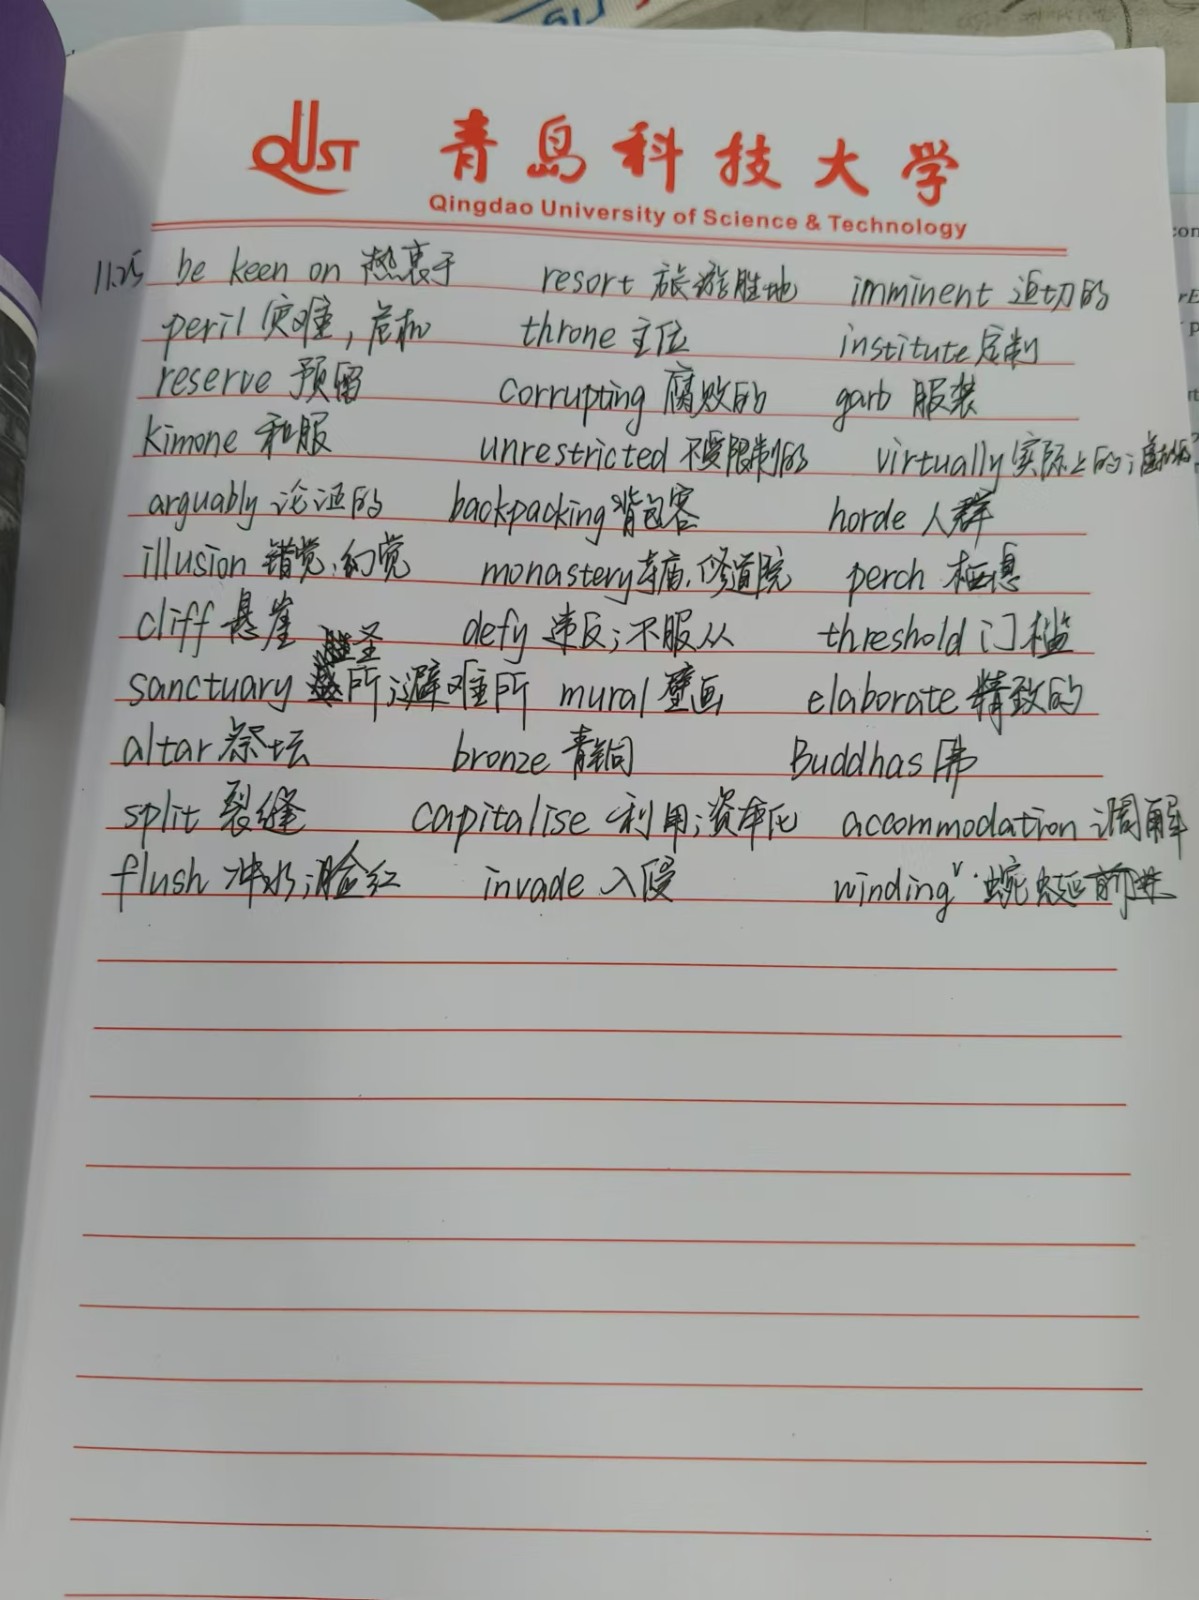 QUST 青岛科技大学
Qingdao University of Science & Technology
11.25 be keen on 热衷于 resort 旅游胜地 imminent 迫切的
peril 灾难,危机 throne 主位 institute 定制
reserve 预留 corrupting 腐败的 garb 服装
kimone 和服 unrestricted 不受限制的 virtually 实际上的;
arguably 论证的 backpacking 背包客 horde 人群
illusion 错觉;幻觉 monastery 寺庙.修道院 perch 栖息
cliff 悬崖 defy 违反;不服从 threshold 门槛
sanctuary 圣所;避难所 mural 壁画 elaborate 精致的
altar 祭坛 bronze 青铜 Buddhas 佛
split 裂缝 capitalise 利用;资本化 accommodation 调解
flush 冲水;脸红 invade 入侵 winding v.蜿蜒前进